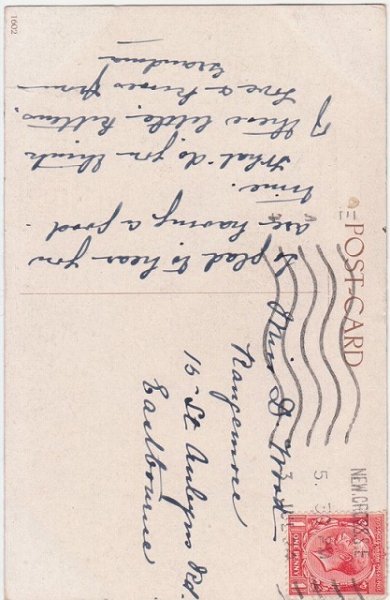 POST-CARD
so glad to hear you
are having a good
time.
What do you think
of these little kittens
Love & kisses from
Grandma
Miss D. Wood
15 St Aubyns Rd.
Eastbourne
NEW CROSS S.E.
5.30
ONE PENNY
1602